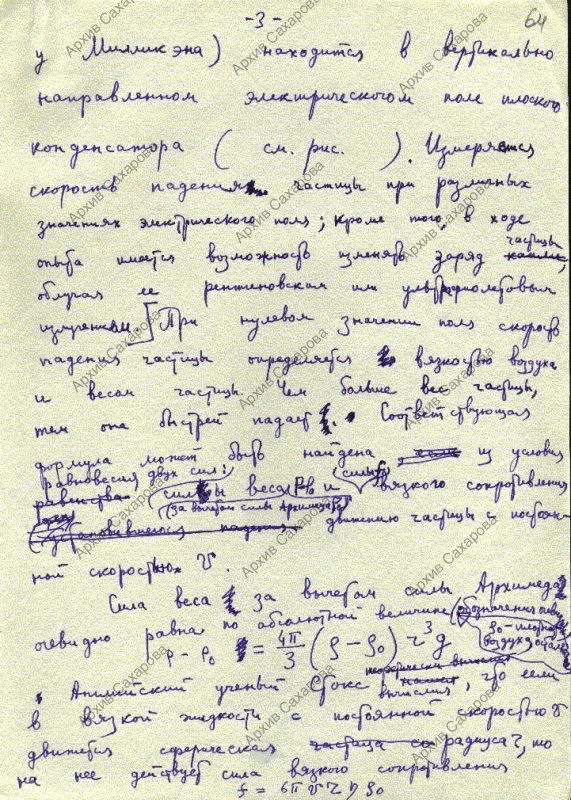 -3-
64
у Милликэна) находится в вертикально
направленном электрическом поле плоского
конденсатора ( см. рис. ). Измеряется
скорость падения частицы при различных
значениях электрического поля; кроме того, в ходе
опыта имеется возможность изменять заряд частицы
облучая ее рентгеновским или ультрафиолетовым
излучением] При нулевом значении поля скорость
падения частицы определяется вязкостью воздуха
и весом частицы. Чем больше вес частицы,
тем она быстрей падает. Соответствующая
формула может быть найдена из условия
равновесия двух сил:
силы веса P-P₀ и силы f вязкого сопротивления
(за вычетом силы Архимеда)
движению частицы с постоян-
ной скоростью v.
Сила веса за вычетом силы Архимеда
очевидно равна по абсолютной величине (обозначения
ρ₀ - плотность
воздуха,
P - P₀ = 4π/3 (ρ-ρ₀) r³ g
Английский ученый Стокс теоретически
вычислил, что если
в вязкой жидкости с постоянной скоростью v
движется сферическая частица радиуса r, то
на нее действует сила вязкого сопротивления
f = 6π v r η ρ₀
Архив Сахарова